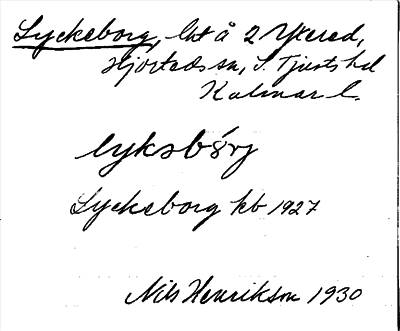 Lyckeborg, lht å 2 Ykered,
Hjorteds sn, S. Tjusts hd
Kalmar l.
lyksbórj
Lyckeborg kb 1927
Nils Henrikson 1930